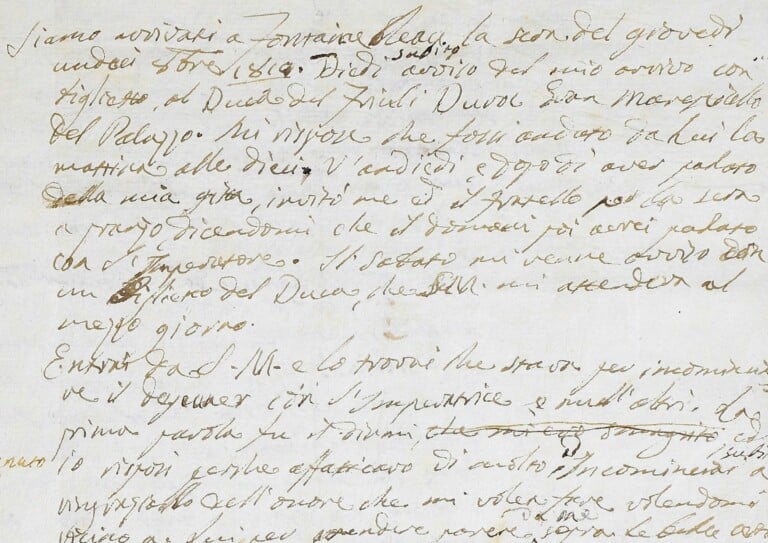 Siamo arrivati a Fontainebleau la sera del giovedì
undeci 8bre 1810. Diedi subito avviso del mio arrivo con
biglietto, al Duca del Friuli Duroc Gran Maresciallo
del Palazzo. Mi rispose che fossi andato da lui la
mattina alle dieci. V'andiedi, e dopo di aver parlato
della mia gita, invitò me ed il fratello per la sera
a pranzo, dicendomi che il domani poi averei parlato
con l'Imperatore. Il sabato mi venne avviso con
un Biglietto del Duca, che S.M. mi attendeva al
mezzo giorno.
Entrai da S.M. e lo trovai che stava per incomincia
re il dejeuner con l'Imperatrice e null'altri. La
prima parola fu il dirmi, che mi ero smagrito ed
io risposi perché affaticavo di molto. Incominciai a
ringraziarlo dell'onore che mi voleva fare volendomi
vicino a lui per prendere parere da me sopra le belle arti